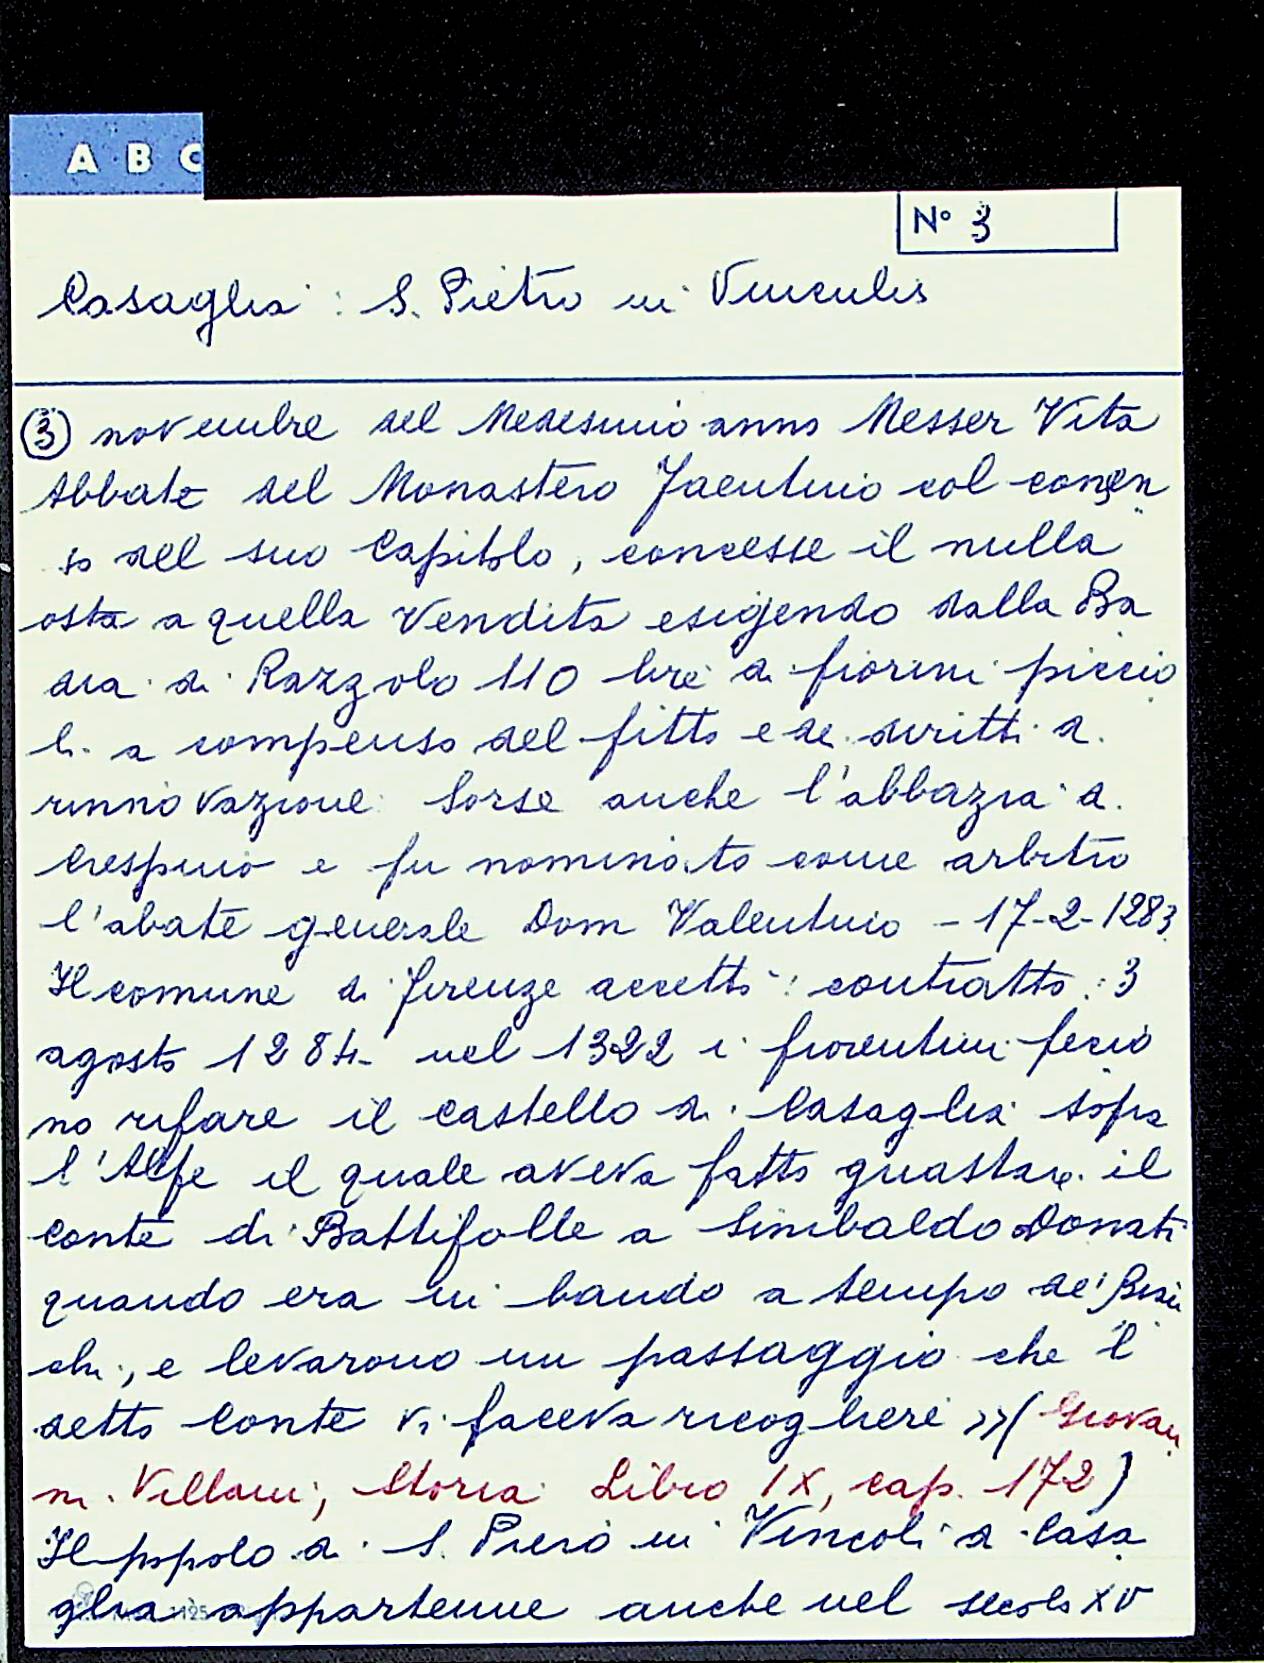 A B C
N° 3
Casaglia : S. Pietro in Vinculis
③ novembre del Medesimo anno Messer Vita
Abbate del Monastero Jacentino col consen
so del suo Capitolo, concesse il nulla
osta a quella Vendita esigendo dalla Ba
dia di Razzolo 110 lire di fiorini piccio
li a compenso del fitto e dei diritti di
rinnovazione. Sorse anche l'abbazia di
Crespino e fu nominato come arbitro
l'abate generale Dom Valentino - 17-2-1283
Il comune di firenze accettò : contratto : 3
agosto 1284- nel 1322 i fiorentini fecio
no rifare il castello di Casaglia sopra
l'Alpe il quale aveva fatto guastare il
conte di Battifolle a Simbaldo Donati
quando era in bando a tempo de'
chi, e levarono un passaggio che 'l
detto Conte vi faceva ricogliere >> (Giovan
ni Villani, Storia Libro IX, cap. 172)
Il popolo di S. Piero in Vincoli di Casa
glia appartenne anche nel secolo XV